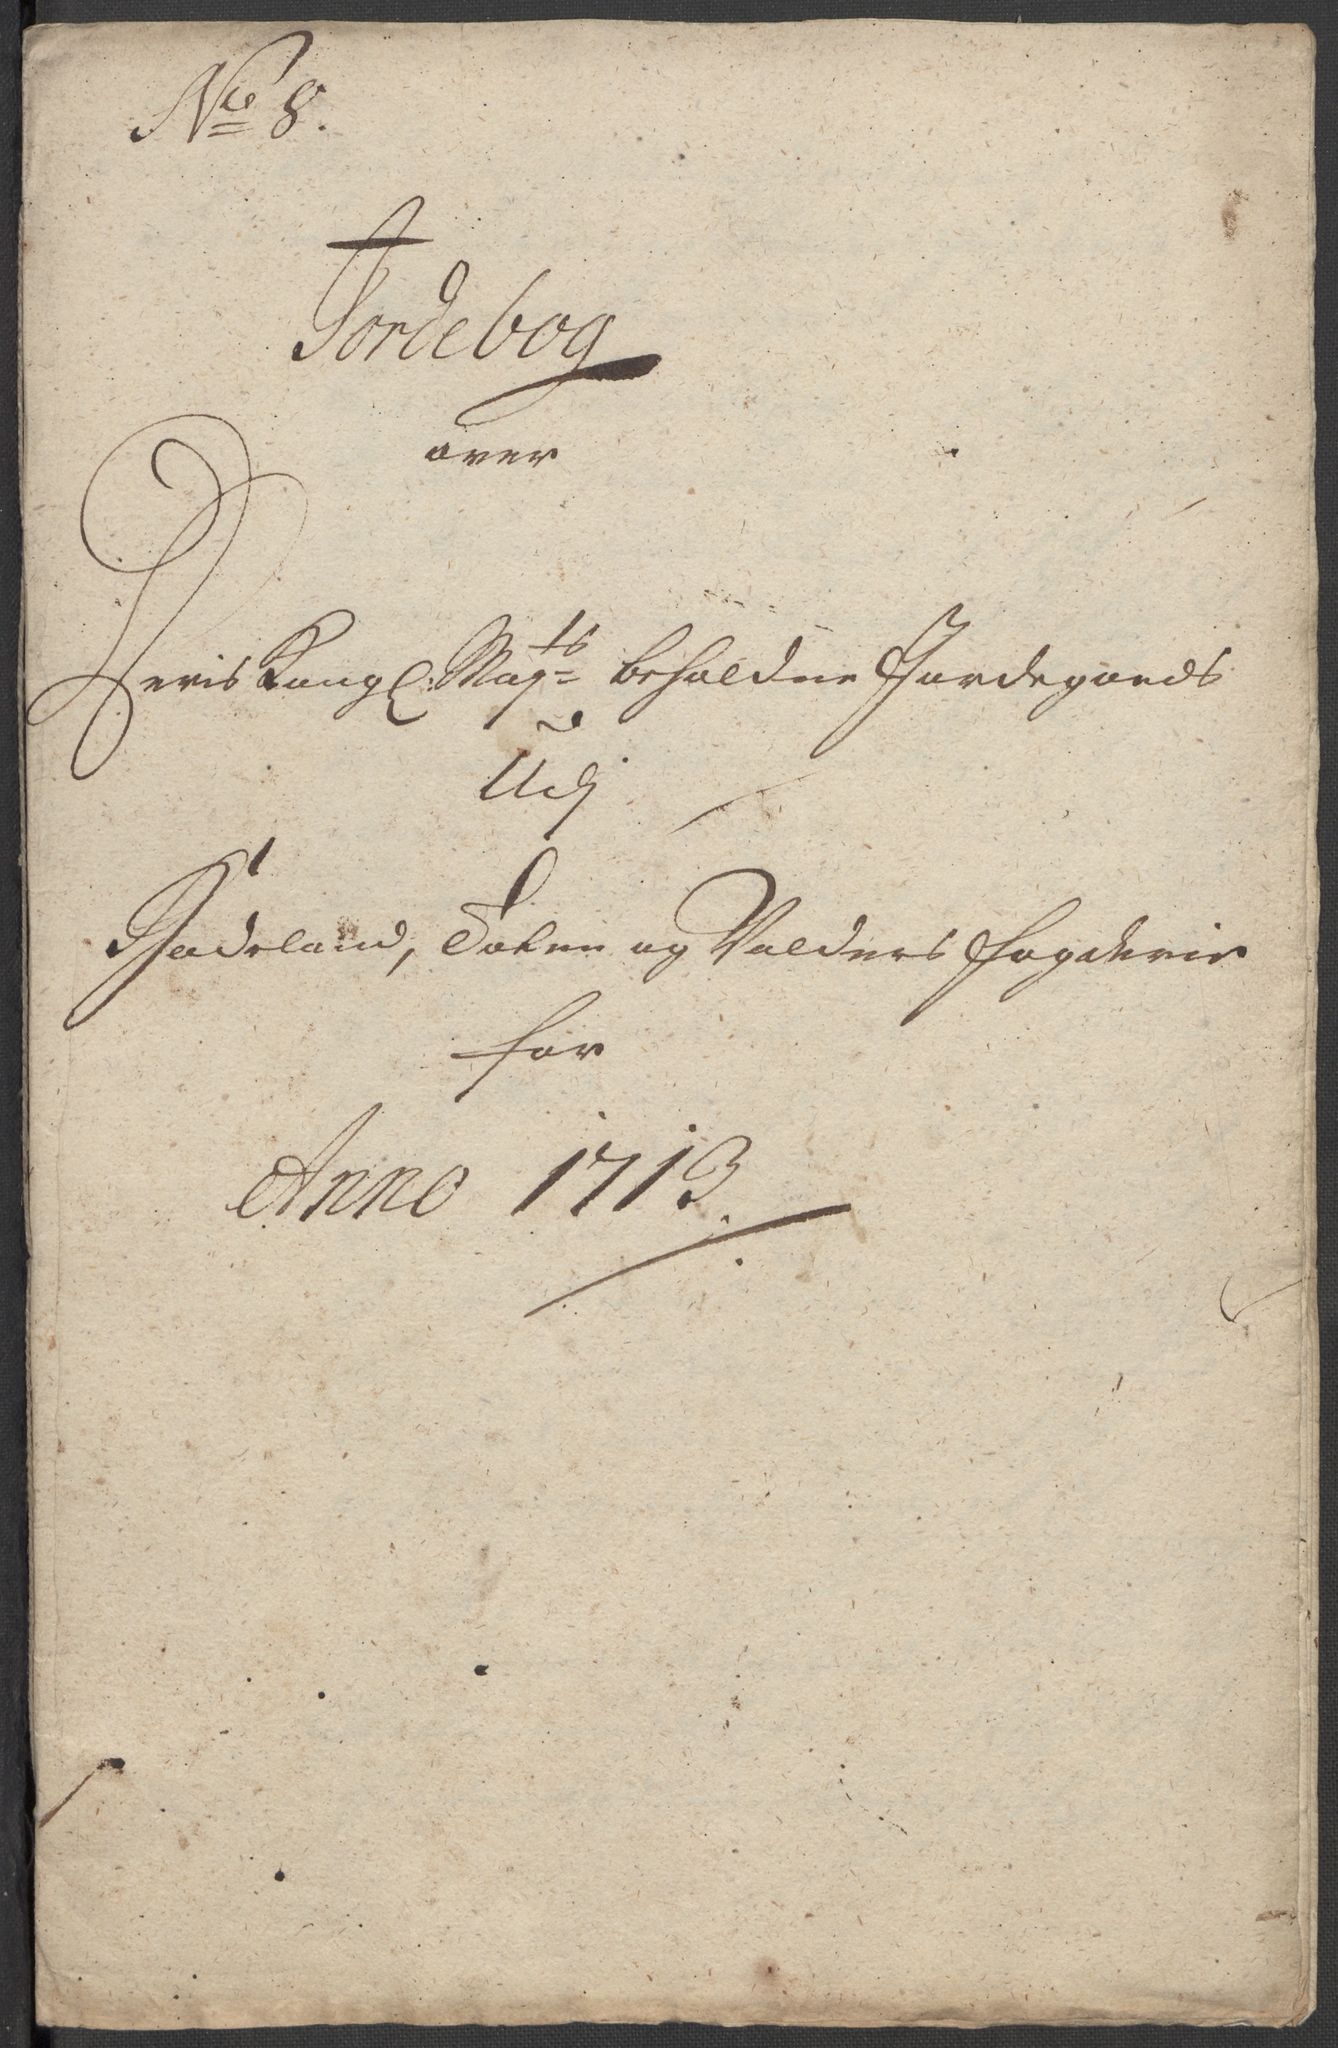 No 8.
Jordebog
over
Deris Kongl: Mayts beholdne Jordegoeds
Udj
Hadeland, Toten og Valders fogderie
for
Anno 1713